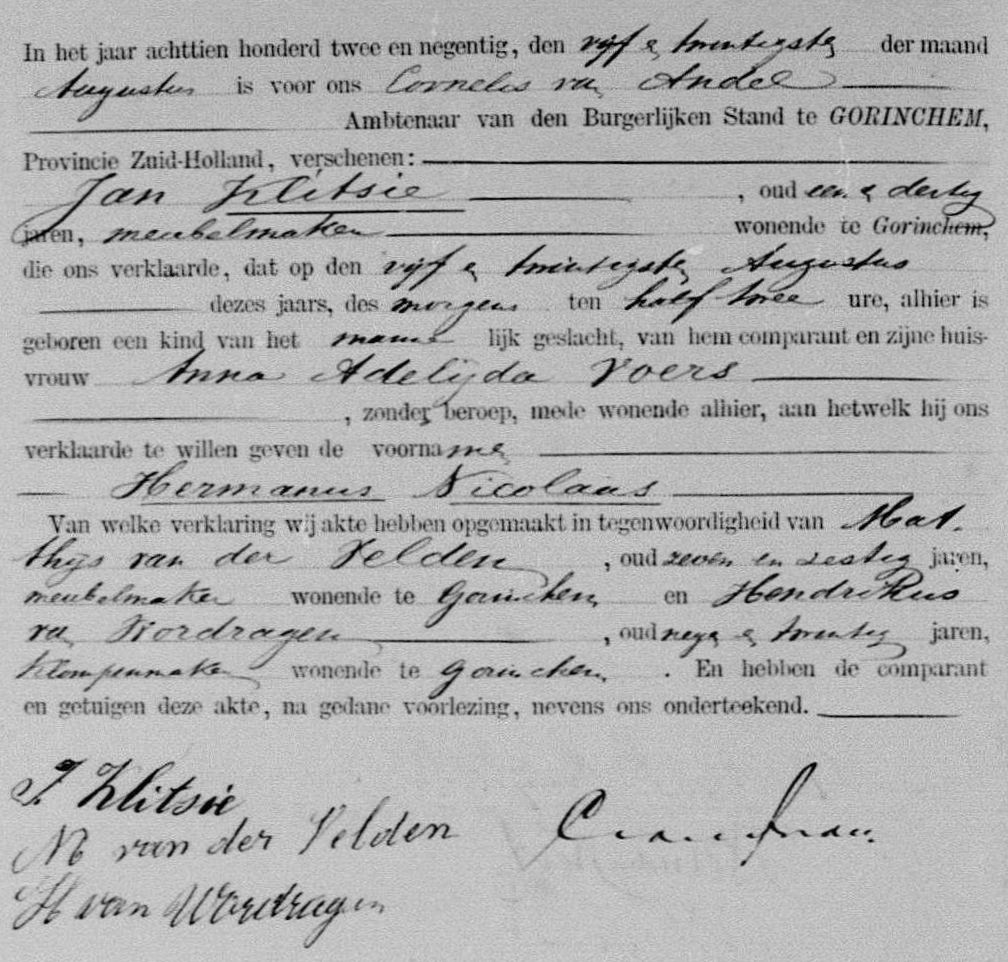 In het jaar achttien honderd twee en negentig, den vijf en twintigsten der maand
Augustus is voor ons Cornelis van Andel
Ambtenaar van den Burgerlijken Stand te GORINCHEM,
Provincie Zuid-Holland, verschenen:
Jan Klitsie , oud een en dertig
jaren, meubelmaker wonende te Gorinchem,
die ons verklaarde, dat op den vijf en twintigsten Augustus
dezes jaars, des morgens ten half twee ure, alhier is
geboren een kind van het manne lijk geslacht, van hem comparant en zijne huis-
vrouw Anna Adelijda Voers
, zonder beroep, mede wonende alhier, aan hetwelk hij ons
verklaarde te willen geven de voornamen
Hermanus Nicolaas
Van welke verklaring wij akte hebben opgemaakt in tegenwoordigheid van Mat-
thijs van der Velden , oud zeven en zestig jaren,
meubelmaker wonende te Gorinchem en Hendrikus
van Wordragen , oud negen en twintig jaren,
klompenmaker wonende te Gorinchem . En hebben de comparant
en getuigen deze akte, na gedane voorlezing, nevens ons onderteekend.
J. Klitsie
M van der Velden
H van Wordragen